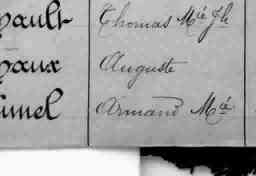 hault Thomas Mie Jh
haux Auguste
umel Armand Mie